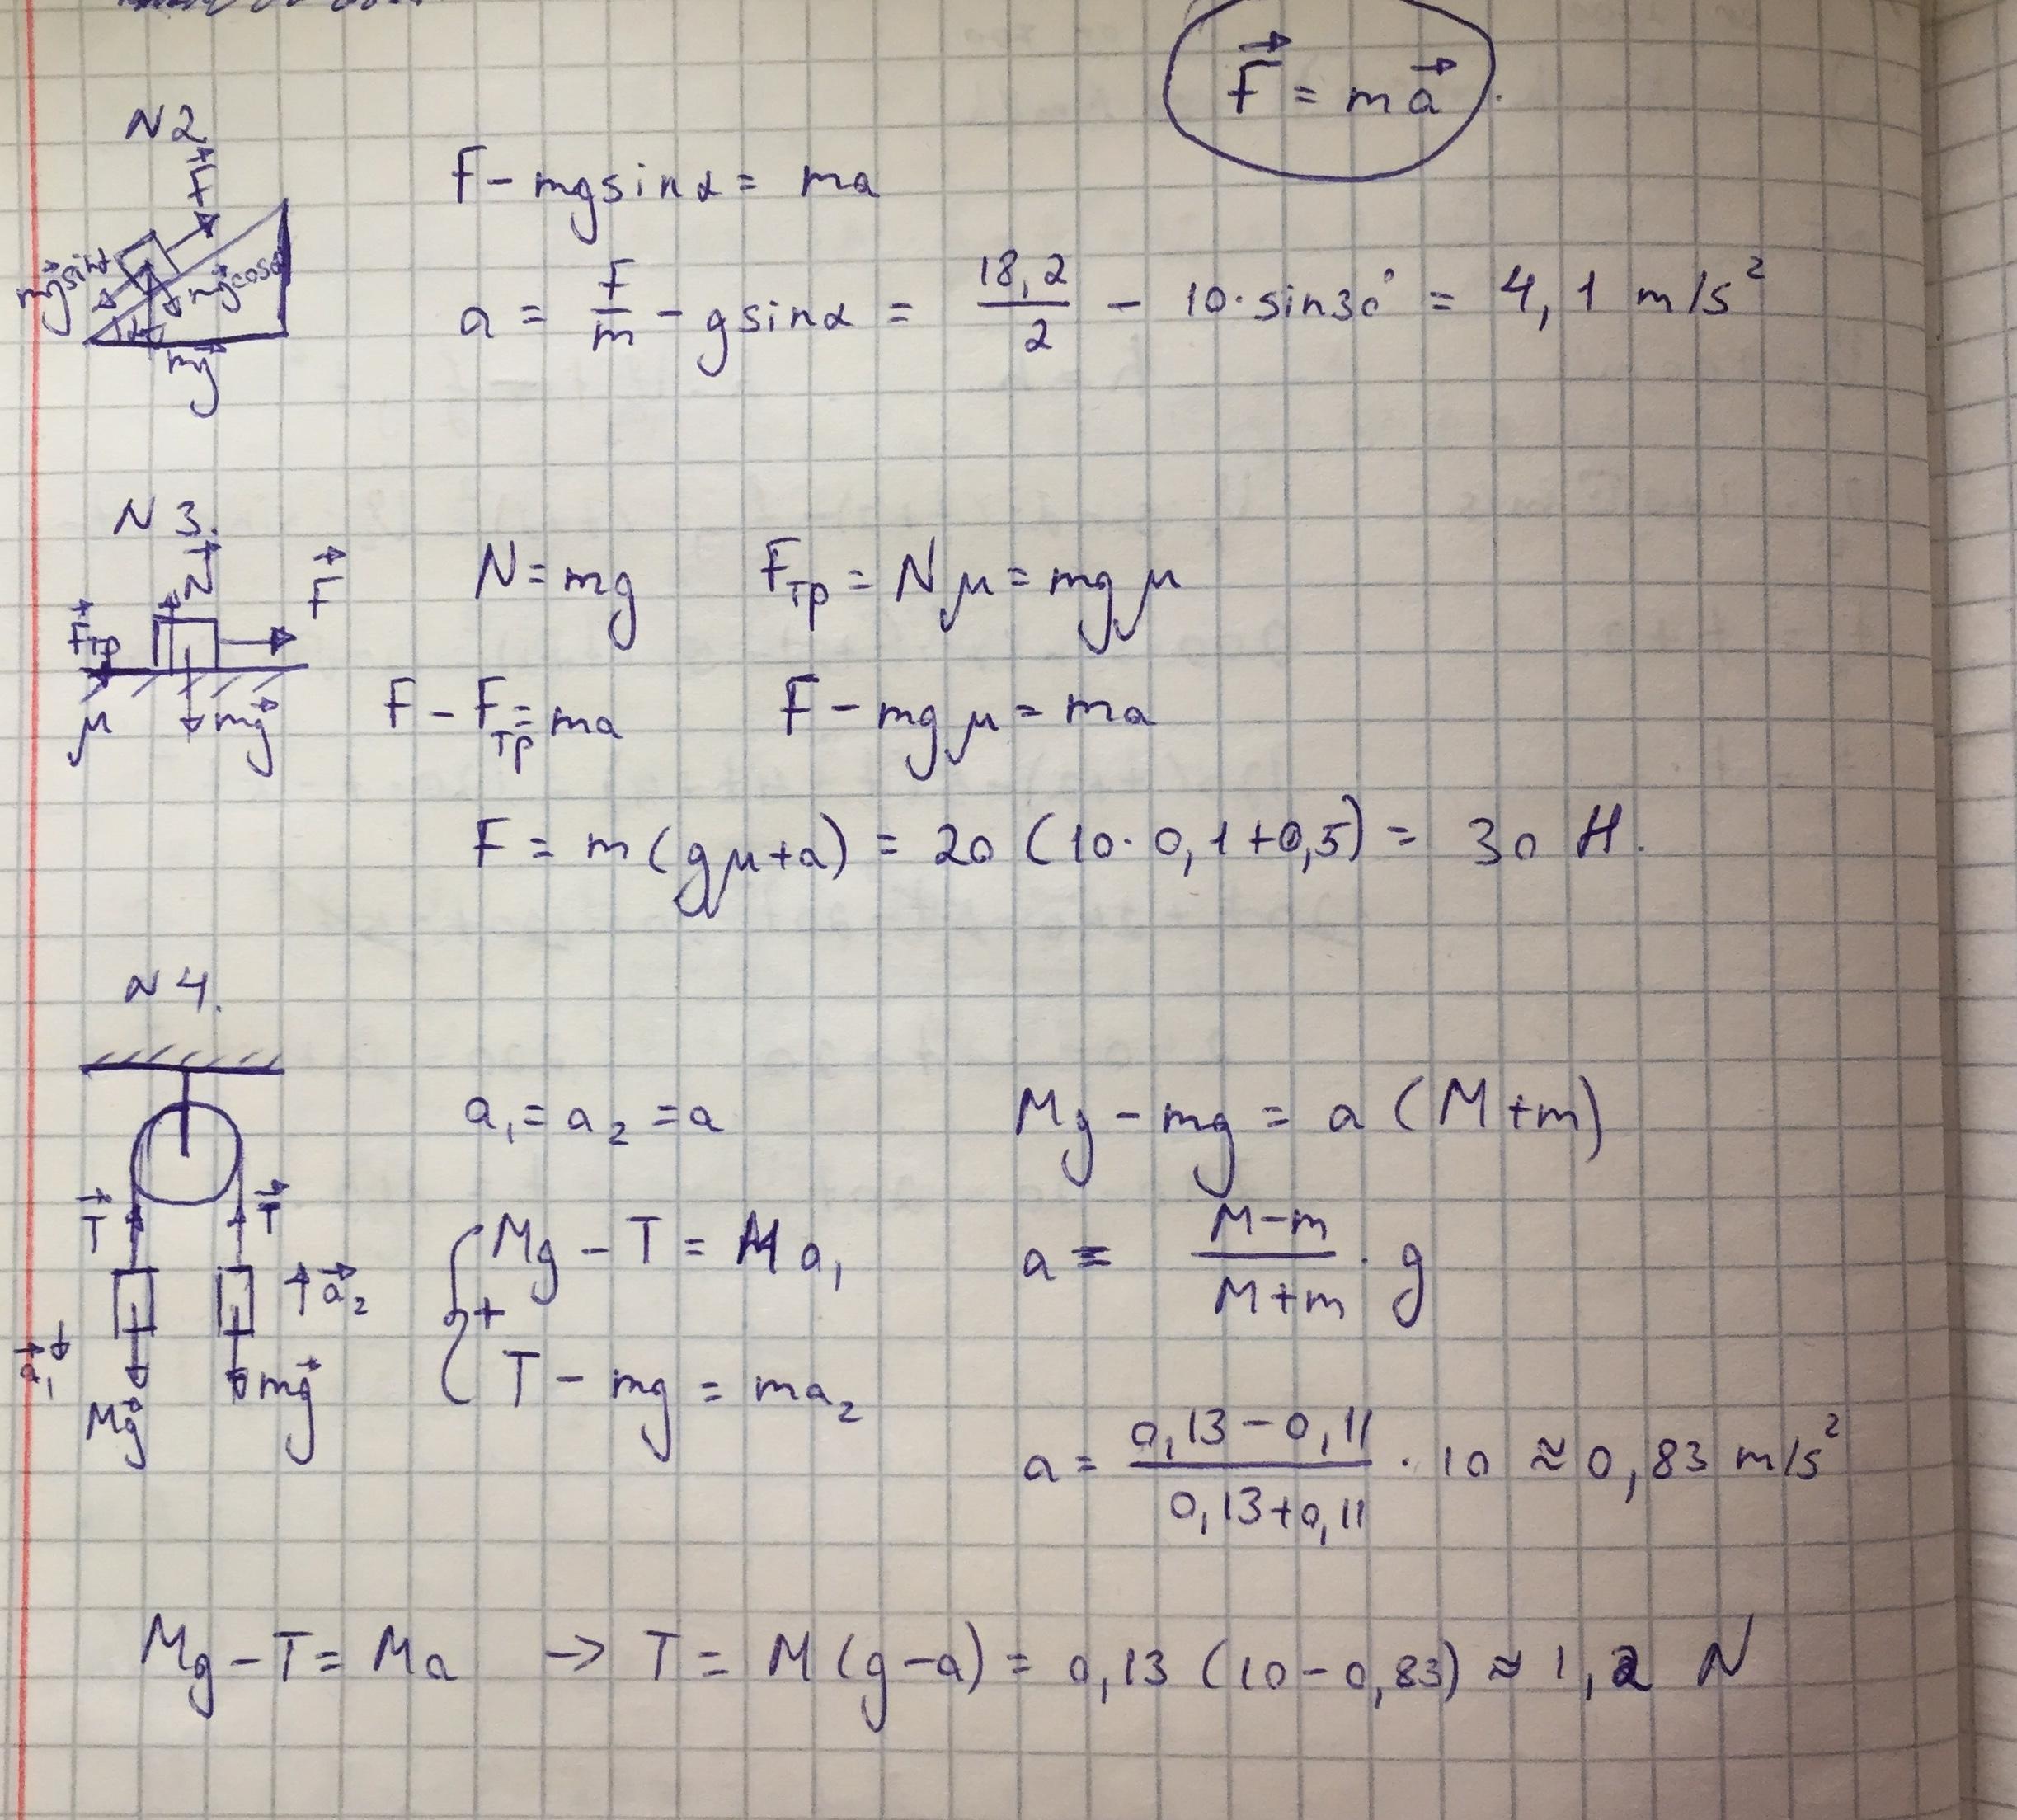 F = ma.
N2
F
F - mg sinα = ma
mg sinα
mg cosα
α
mg
a = F/m - g sinα = 18,2/2 - 10·sin30° = 4,1 m/s²
N 3.
N
F
Fтр
μ
mg
N = mg Fтр = Nμ = mgμ
F - Fтр = ma F - mgμ = ma
F = m(gμ+a) = 20 (10·0,1+0,5) = 30 H.
N 4.
T
T
a₁
a₂
Mg
mg
a₁ = a₂ = a Mg - mg = a (M+m)
Mg - T = Ma₁ a = M-m/M+m · g
+
T - mg = ma₂
a = 0,13-0,11/0,13+0,11 · 10 ≈ 0,83 m/s²
Mg - T = Ma -> T = M(g-a) = 0,13 (10-0,83) ≈ 1,2 N